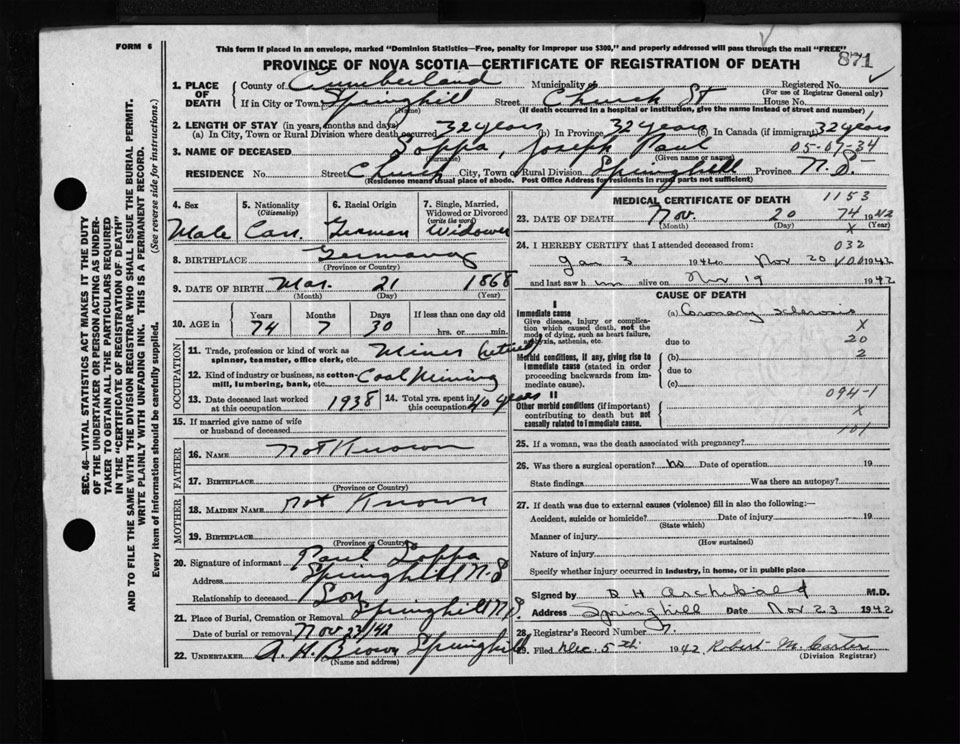 FORM 6
This form if placed in an envelope, marked "Dominion Statistics—Free, penalty for improper use $300," and properly addressed will pass through the mail "FREE"
PROVINCE OF NOVA SCOTIA—CERTIFICATE OF REGISTRATION OF DEATH
871
SEC. 46—VITAL STATISTICS ACT MAKES IT THE DUTY
OF THE UNDERTAKER OR PERSON ACTING AS UNDER-
TAKER TO OBTAIN ALL THE PARTICULARS REQUIRED
IN THE "CERTIFICATE OF REGISTRATION OF DEATH"
AND TO FILE THE SAME WITH THE DIVISION REGISTRAR WHO SHALL ISSUE THE BURIAL PERMIT.
WRITE PLAINLY WITH UNFADING INK. THIS IS A PERMANENT RECORD.
Every item of information should be carefully supplied. (See reverse side for instructions.)
1. PLACE OF DEATH County of Cumberland Municipality Registered No.
(For use of Registrar General only)
If in City or Town Springhill Street Church St House No.
(Name) (If death occurred in a hospital or institution, give the name instead of street and number)
2. LENGTH OF STAY (in years, months and days)
(a) In City, Town or Rural Division where death occurred 32 years (b) In Province 32 years (c) In Canada (if immigrant) 32 years
3. NAME OF DECEASED Soppa, Joseph Paul 05-07-34
(Surname) (Given name or names)
RESIDENCE No. Street Church City, Town or Rural Division Springhill Province N.S.
(Residence means usual place of abode. Post Office Address for residents in rural parts not sufficient)
4. Sex 5. Nationality (Citizenship) 6. Racial Origin 7. Single, Married, Widowed or Divorced (write the word)
Male Can. German Widower
8. BIRTHPLACE Germany
(Province or Country)
9. DATE OF BIRTH Mar. 21 1868
(Month) (Day) (Year)
10. AGE in Years Months Days If less than one day old
74 7 30 hrs. or min.
OCCUPATION
11. Trade, profession or kind of work as spinner, teamster, office clerk, etc. Miner (retired)
12. Kind of industry or business, as cotton-mill, lumbering, bank, etc. Coal Mining
13. Date deceased last worked at this occupation 1938 14. Total yrs. spent in this occupation 40 years
15. If married give name of wife or husband of deceased
FATHER
16. NAME Not Known
17. BIRTHPLACE
(Province or Country)
MOTHER
18. MAIDEN NAME Not Known
19. BIRTHPLACE
(Province or Country)
20. Signature of informant Paul Soppa
Address Springhill N.S
Relationship to deceased Son
21. Place of Burial, Cremation or Removal Springhill N.S.
Date of burial or removal Nov 23/42
22. UNDERTAKER A. H. Brown Springhill
(Name and address)
MEDICAL CERTIFICATE OF DEATH 1153
23. DATE OF DEATH Nov. 20 74 1942
(Month) (Day) x (Year)
24. I HEREBY CERTIFY that I attended deceased from: 032
Jan 3 1942 to Nov 20 1942
and last saw him alive on Nov 19 1942
CAUSE OF DEATH
I
Immediate cause (a) Coronary Sclerosis
Give disease, injury or complication which caused death, not the mode of dying, such as heart failure, asphyxia, asthenia, etc. x
due to 20
Morbid conditions, if any, giving rise to immediate cause (stated in order proceeding backwards from immediate cause). (b) 2
due to
(c)
II
Other morbid conditions (if important) contributing to death but not causally related to immediate cause. 094-1
x
101
25. If a woman, was the death associated with pregnancy?
26. Was there a surgical operation? no Date of operation 19
State findings Was there an autopsy?
27. If death was due to external causes (violence) fill in also the following:—
Accident, suicide or homicide? Date of injury 19
(State which)
Manner of injury
(How sustained)
Nature of injury
Specify whether injury occurred in industry, in home, or in public place
Signed by D H Archibald M.D.
Address Springhill Date Nov 23 1942
28. Registrar's Record Number 7.
29. Filed Dec. 5th 1942 Robert M. Carter
(Division Registrar)